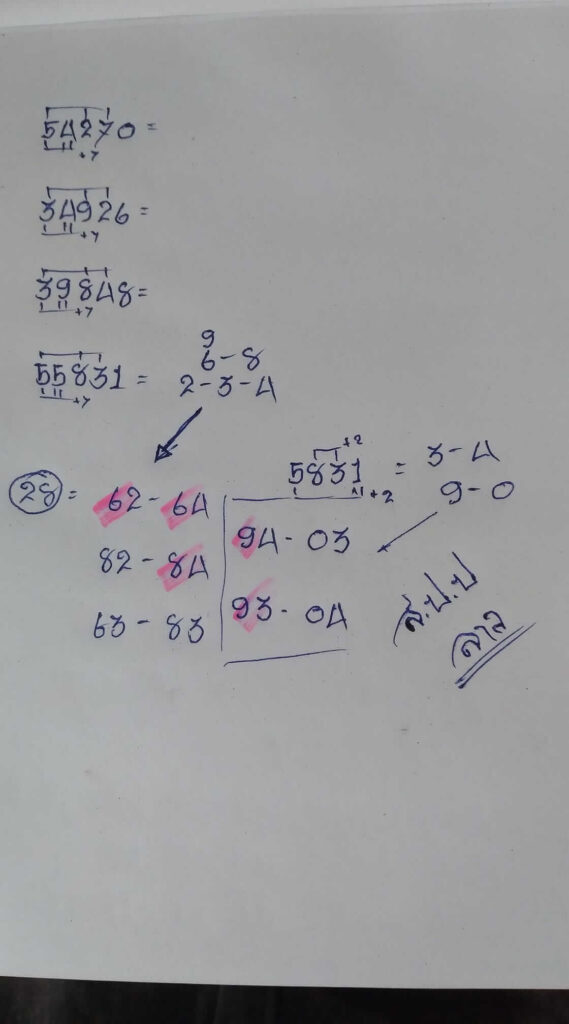 54270 =
+7
34926 =
+7
39848 =
+7
55831 =
+7
9
6-8
2-3-4
+2
5831 = 3-4
+2
9-0
28 = 62 - 64
82 - 84
63 - 83
94 - 03
93 - 04
ส.ป.ป
ลาว